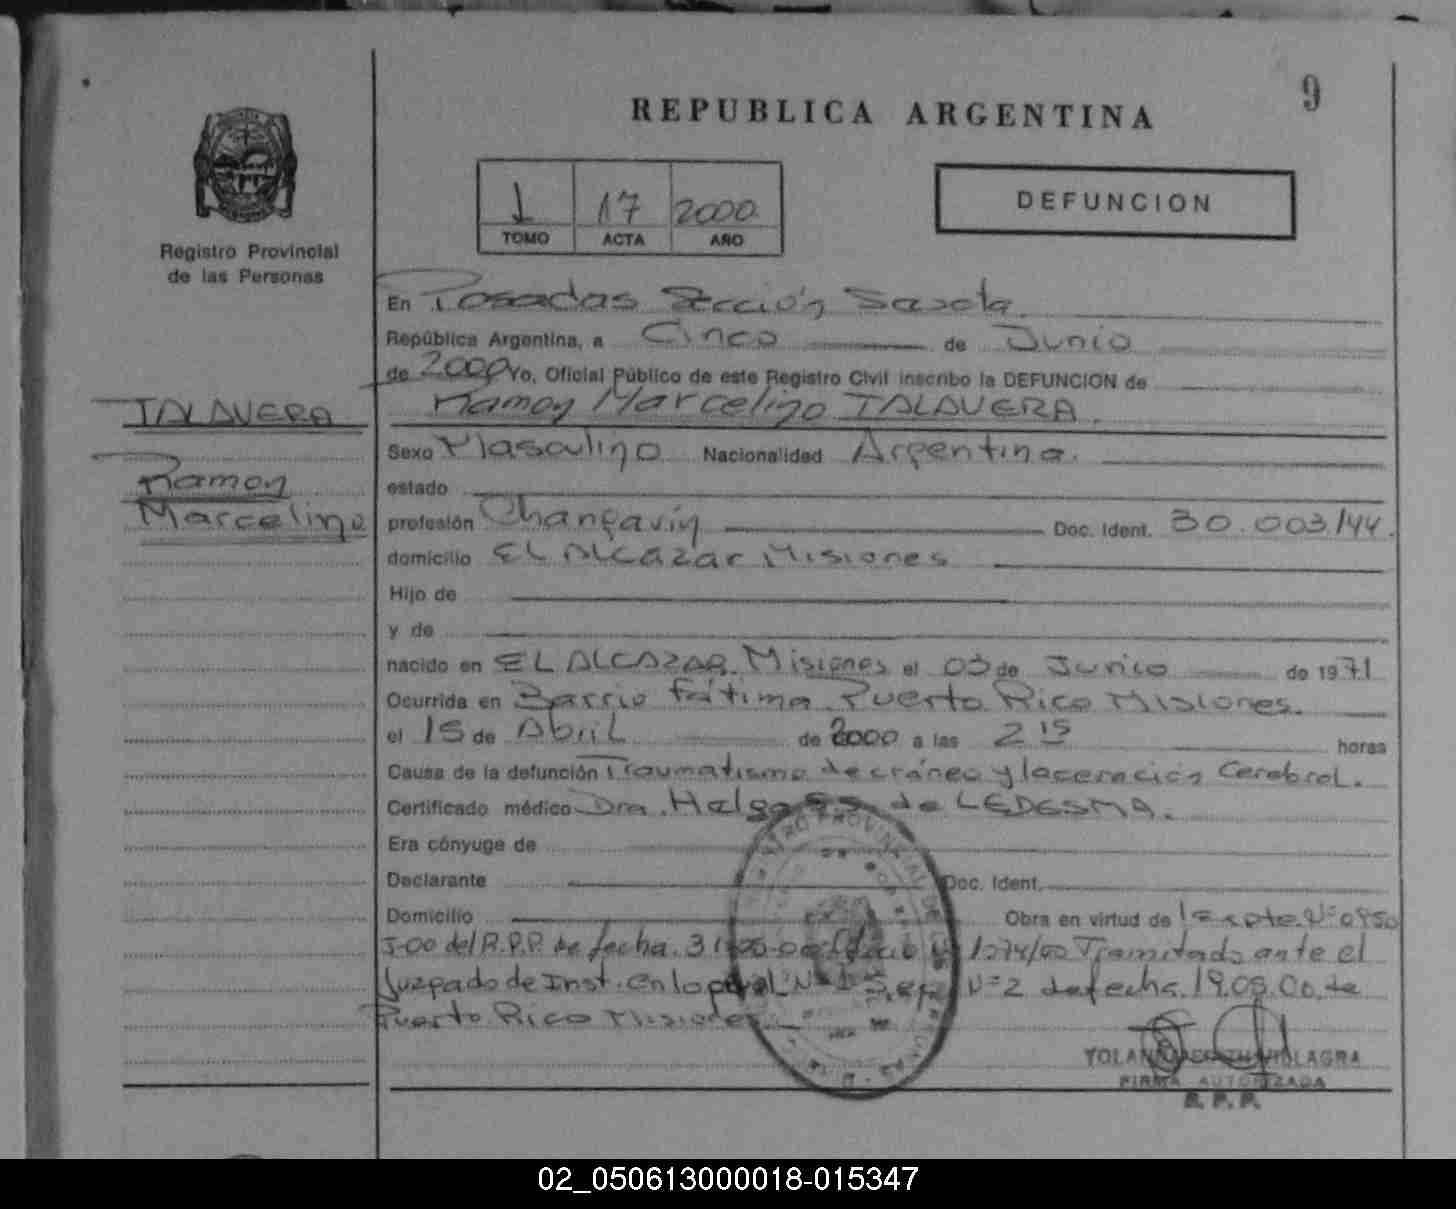 9
REPUBLICA ARGENTINA
1 17 2000
TOMO ACTA AÑO
DEFUNCION
Registro Provincial
de las Personas
En Posadas Sección Sexta.
República Argentina, a Cinco de Junio
de 2000 Yo, Oficial Público de este Registro Civil inscribo la DEFUNCION de
TALAVERA
Ramon Marcelino TALAVERA.
Sexo Masculino Nacionalidad Argentina.
Ramon
estado
Marcelino
profesión Changarín Doc. Ident. 30.003.144.
domicilio EL ALCAZAR Misiones
Hijo de
y de
nacido en EL ALCAZAR Misiones el 03 de Junio de 1971
Ocurrida en Barrio Fátima Puerto Rico Misiones.
el 15 de Abril de 2000 a las 2 15 horas
Causa de la defunción Traumatismo de cráneo y laceración Cerebral.
Certificado médico Dra. Helga de LEDESMA.
Era cónyuge de
Declarante Doc. Ident.
Domicilio Obra en virtud de Expte. Nº
del R.P.P. de fecha Tramitado ante el
Juzgado de Inst. en lo Nº 2 de fecha de
Puerto Rico Misiones
VILLAGRA
FIRMA AUTORIZADA
R. P. P.
02_050613000018-015347